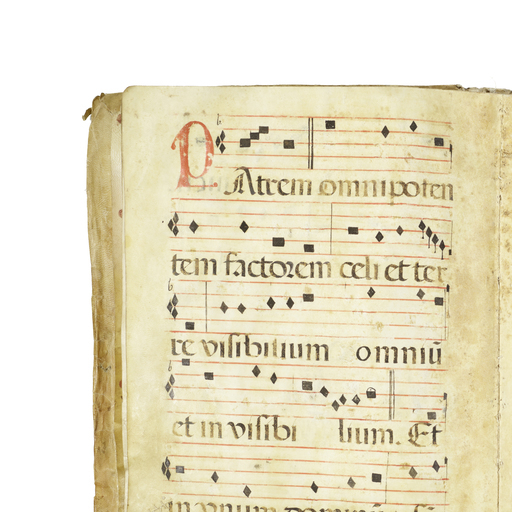 PAtrem omnipoten
tem factorem celi et ter
re visibilium omniū
et in visibi lium. Et
in vnum dominū